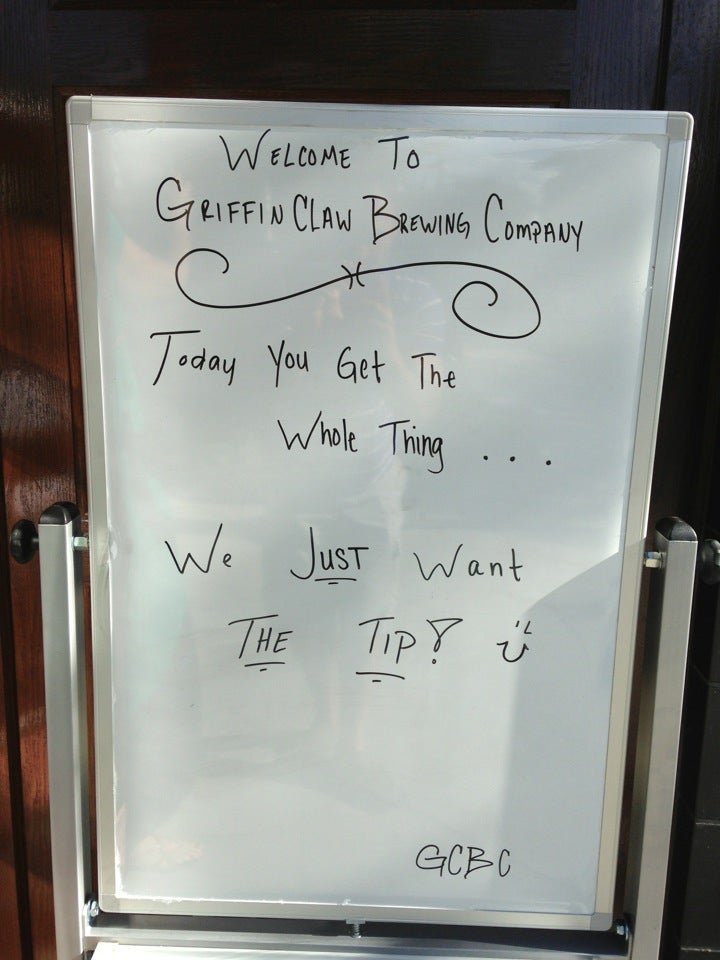 Welcome To
Griffin Claw Brewing Company
Today You Get The
Whole Thing ...
We Just Want
The Tip!
GCBC